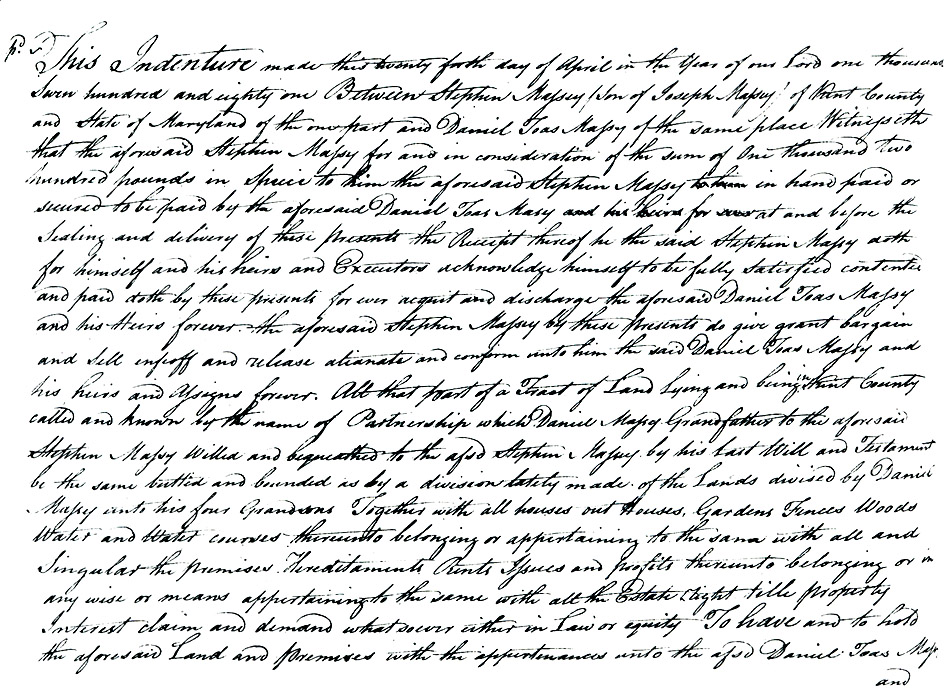 This Indenture made this twenty forth day of April in the Year of our Lord one thousand
Seven hundred and eighty one Between Stephen Massey (Son of Joseph Massy) of Kent County
and State of Maryland of the one part and Daniel Toas Massy of the same place Witnesseth
that the aforesaid Stephen Massy for and in consideration of the sum of One thousand two
hundred pounds in Specie to him the aforesaid Stephen Massy in hand paid or
secured to be paid by the aforesaid Daniel Toas Massy and his heirs for ever at and before the
Sealing and delivery of these presents the Receipt thereof he the said Stephen Massy doth
for himself and his heirs and Executors acknowledge himself to be fully Satisfied contented
and paid doth by these presents for ever acquit and discharge the aforesaid Daniel Toas Massy
and his Heirs forever the aforesaid Stephen Massey by these presents do give grant bargain
and Sell enfeoff and release alianate and conform unto him the said Daniel Toas Massy and
his heirs and Assigns forever. All that part of a Tract of Land Lying and being in Kent County
called and known by the name of Partnership which Daniel Massy Grandfather to the aforesaid
Stephen Massy Willed and bequeathed to the afsd Stephen Massey by his Last Will and Testament
be the same butted and bounded as by a division lately made of the Lands divised by Daniel
Massy unto his four Grandsons Together with all houses out Houses, Gardens Fences Woods
Water and Water courses thereunto belonging or appertaining to the same with all and
Singular the premises Hereditaments Rents Issues and profits thereunto belonging or in
any wise or means appertaining to the same with all the Estate right title property
Interest claim and demand whatsoever either in Law or equity To have and to hold
the aforesaid Land and premises with the appertenances unto the afsd Daniel Toas Massy
and